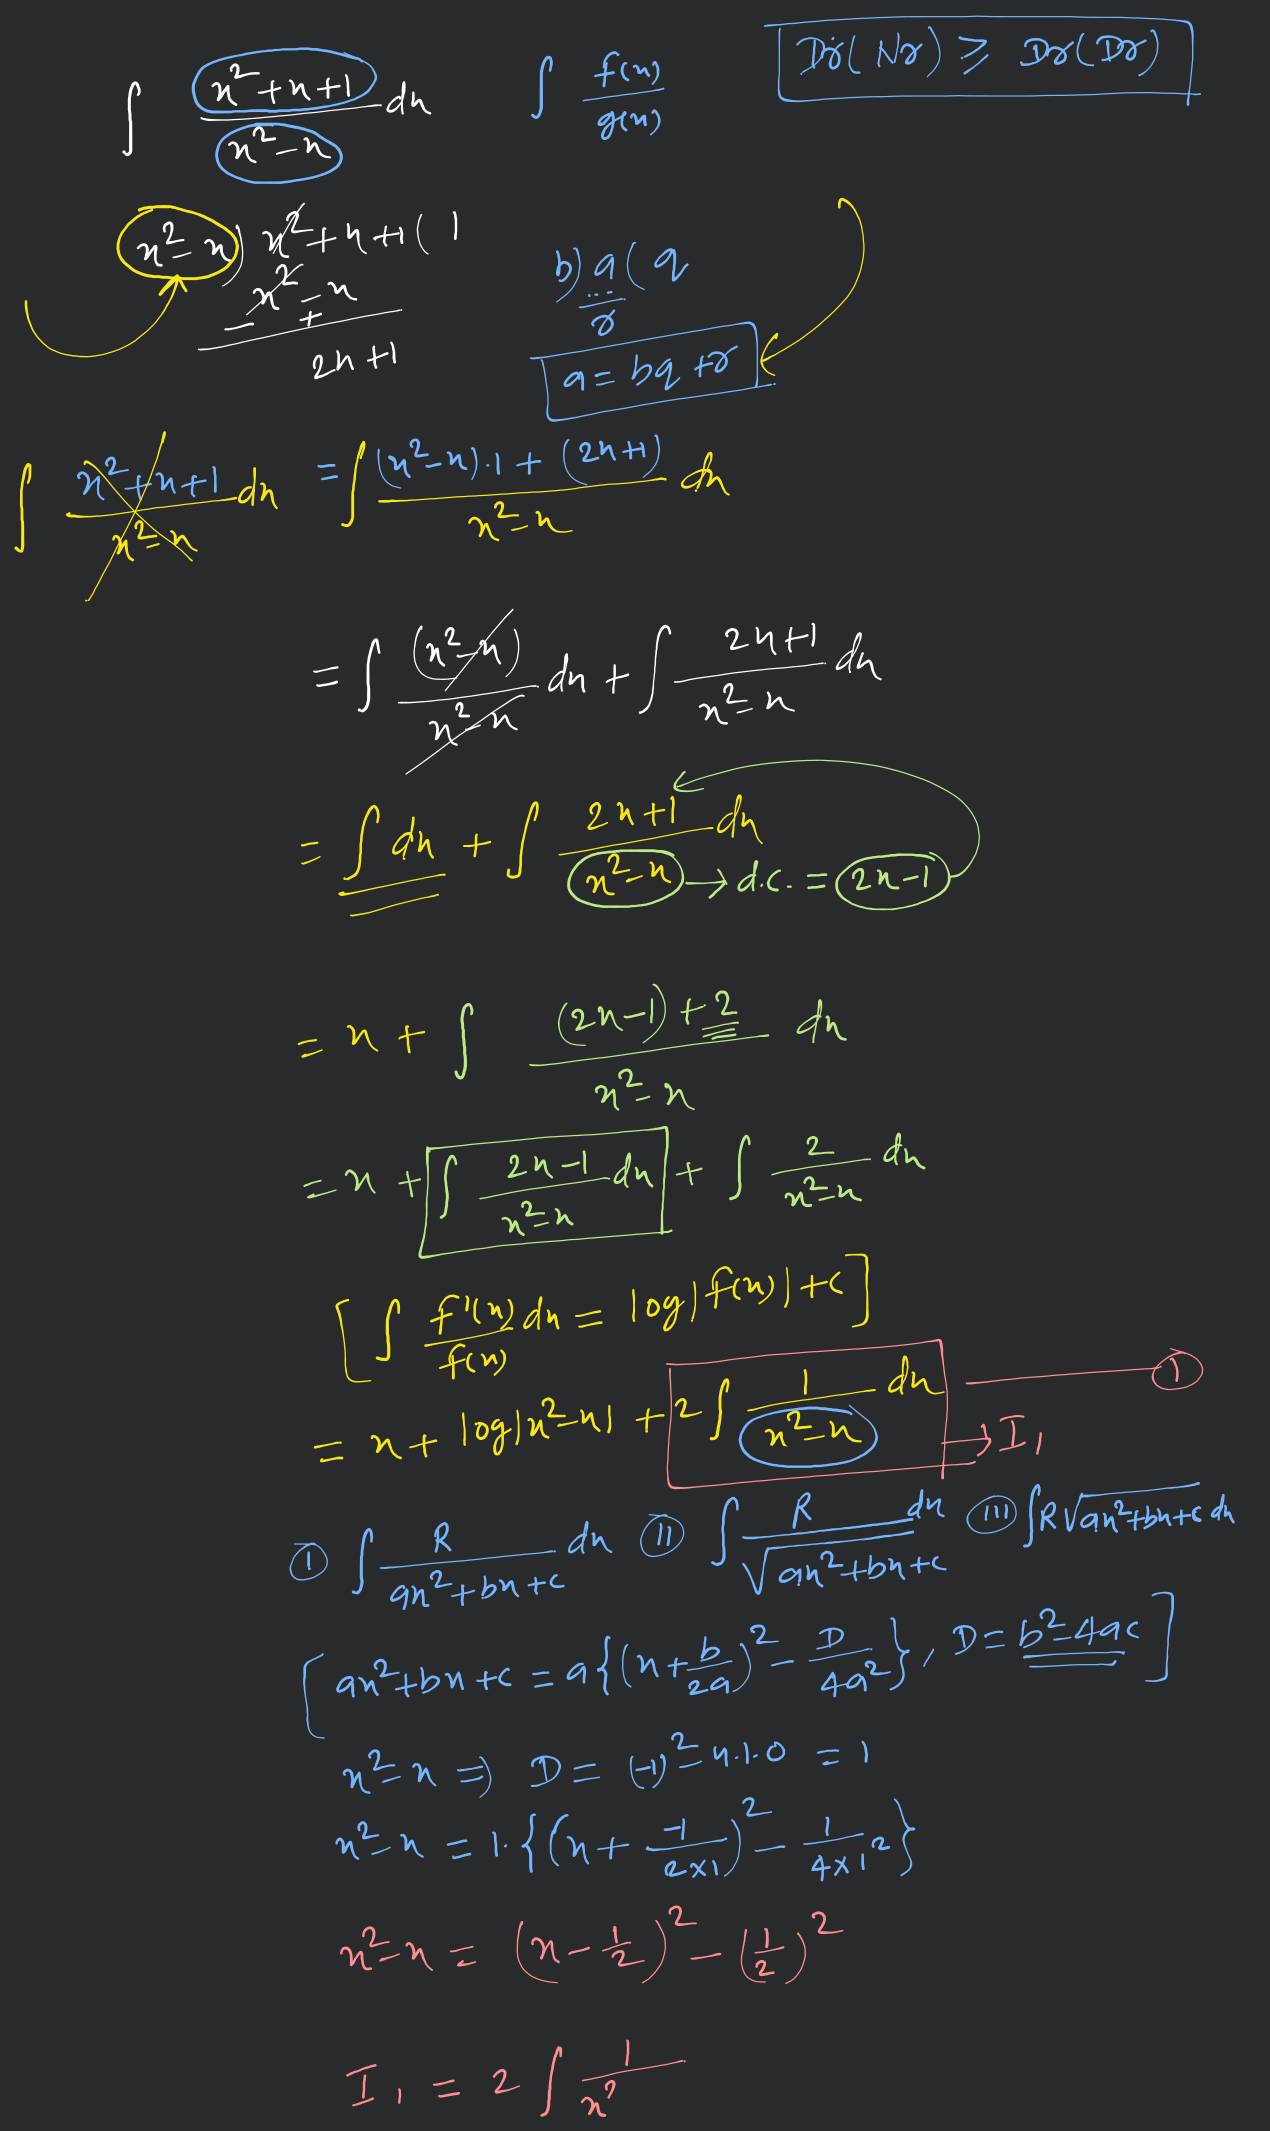 ∫ (x²+x+1)/(x²-x) dx    ∫ f(x)/g(x)    Dr(Nr) ≥ Dr(Dr)
x²-x) x²+x+1 ( 1
x²-x
- +
2x+1
b) a ( q
...
r
a = bq + r
∫ (x²+x+1)/(x²-x) dx = ∫ ((x²-x).1 + (2x+1))/(x²-x) dx
= ∫ (x²-x)/(x²-x) dx + ∫ (2x+1)/(x²-x) dx
= ∫ dx + ∫ (2x+1)/(x²-x) dx → d.c. = 2x-1
= x + ∫ ((2x-1)+2)/(x²-x) dx
= x + ∫ (2x-1)/(x²-x) dx + ∫ 2/(x²-x) dx
[ ∫ f'(x)/f(x) dx = log|f(x)|+c ]
= x + log|x²-x| + 2∫ 1/(x²-x) dx — ① → I₁
Ⓘ ∫ R/(ax²+bx+c) dx Ⓘⓘ ∫ R/√(ax²+bx+c) dx ⓘⓘⓘ ∫R√(ax²+bx+c) dx
[ ax²+bx+c = a{(x+b/2a)² - D/4a²}, D = b²-4ac ]
x²-x ⇒ D = (-1)²-4.1.0 = 1
x²-x = 1.{(x + -1/(2×1))² - 1/(4×1²)}
x²-x = (x-1/2)² - (1/2)²
I₁ = 2∫ 1/x²